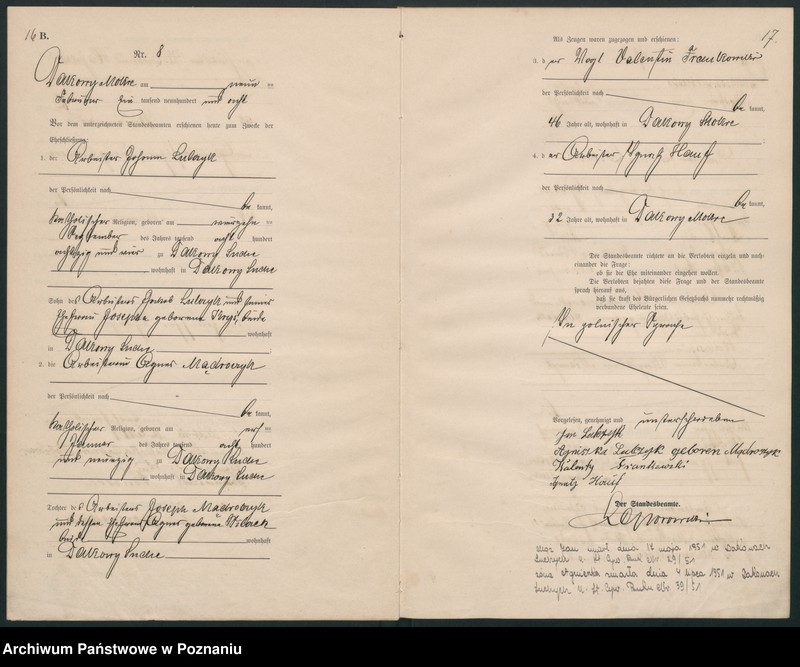 16 B.
Nr. 8
Dakowy Mokre am neun ten
Februar Ein tausend neunhundert und acht
Vor dem unterzeichneten Standesbeamten erschienen heute zum Zwecke der
Eheschließung:
1. der Arbeiter Johann
der Persönlichkeit nach
be kannt,
katholischer Religion, geboren am vierzehn ten
September des Jahres tausend acht hundert
achtzig und vier zu Dakowy Suche
wohnhaft in Dakowy Suche
Sohn des Arbeiters Jakob und seiner
Ehefrau Josepha geborene beide
wohnhaft
in Dakowy Suche
2. die Arbeiterin Agnes Mądroszyk
der Persönlichkeit nach
be kannt,
katholischer Religion, geboren am ten
Januar des Jahres tausend acht hundert
und neunzig zu Dakowy Suche
wohnhaft in Dakowy Suche
Tochter des Arbeiters Joseph Mądroszyk
und dessen Ehefrau Agnes geborene
beide wohnhaft
in Dakowy Suche
17.
Als Zeugen waren zugezogen und erschienen:
3. der Vogt Valentin Frankowski
der Persönlichkeit nach
be kannt,
46 Jahre alt, wohnhaft in Dakowy Mokre
4. der Arbeiter Ignatz Hauf
der Persönlichkeit nach
be kannt,
32 Jahre alt, wohnhaft in Dakowy Mokre
Der Standesbeamte richtete an die Verlobten einzeln und nach-
einander die Frage:
ob sie die Ehe miteinander eingehen wollen.
Die Verlobten bejahten diese Frage und der Standesbeamte
sprach hierauf aus,
daß sie kraft des Bürgerlichen Gesetzbuchs nunmehr rechtmäßig
verbundene Eheleute seien.
In polnischer Sprache
Vorgelesen, genehmigt und unterschrieben
Jan
Agniszka geboren Mądroszyk
Walenty Frankowski
Ignatz Hauf
Der Standesbeamte.
Mąż Jan zmarł dnia 17 maja 1951 w Dakowach
Suchych U. St. Cyw. Buk Nr. 29/51
żona Agnieszka zmarła dnia 4 lipca 1951 w Dakowach
Suchych U. St. Cyw. Buku Nr. 39/51
Archiwum Państwowe w Poznaniu